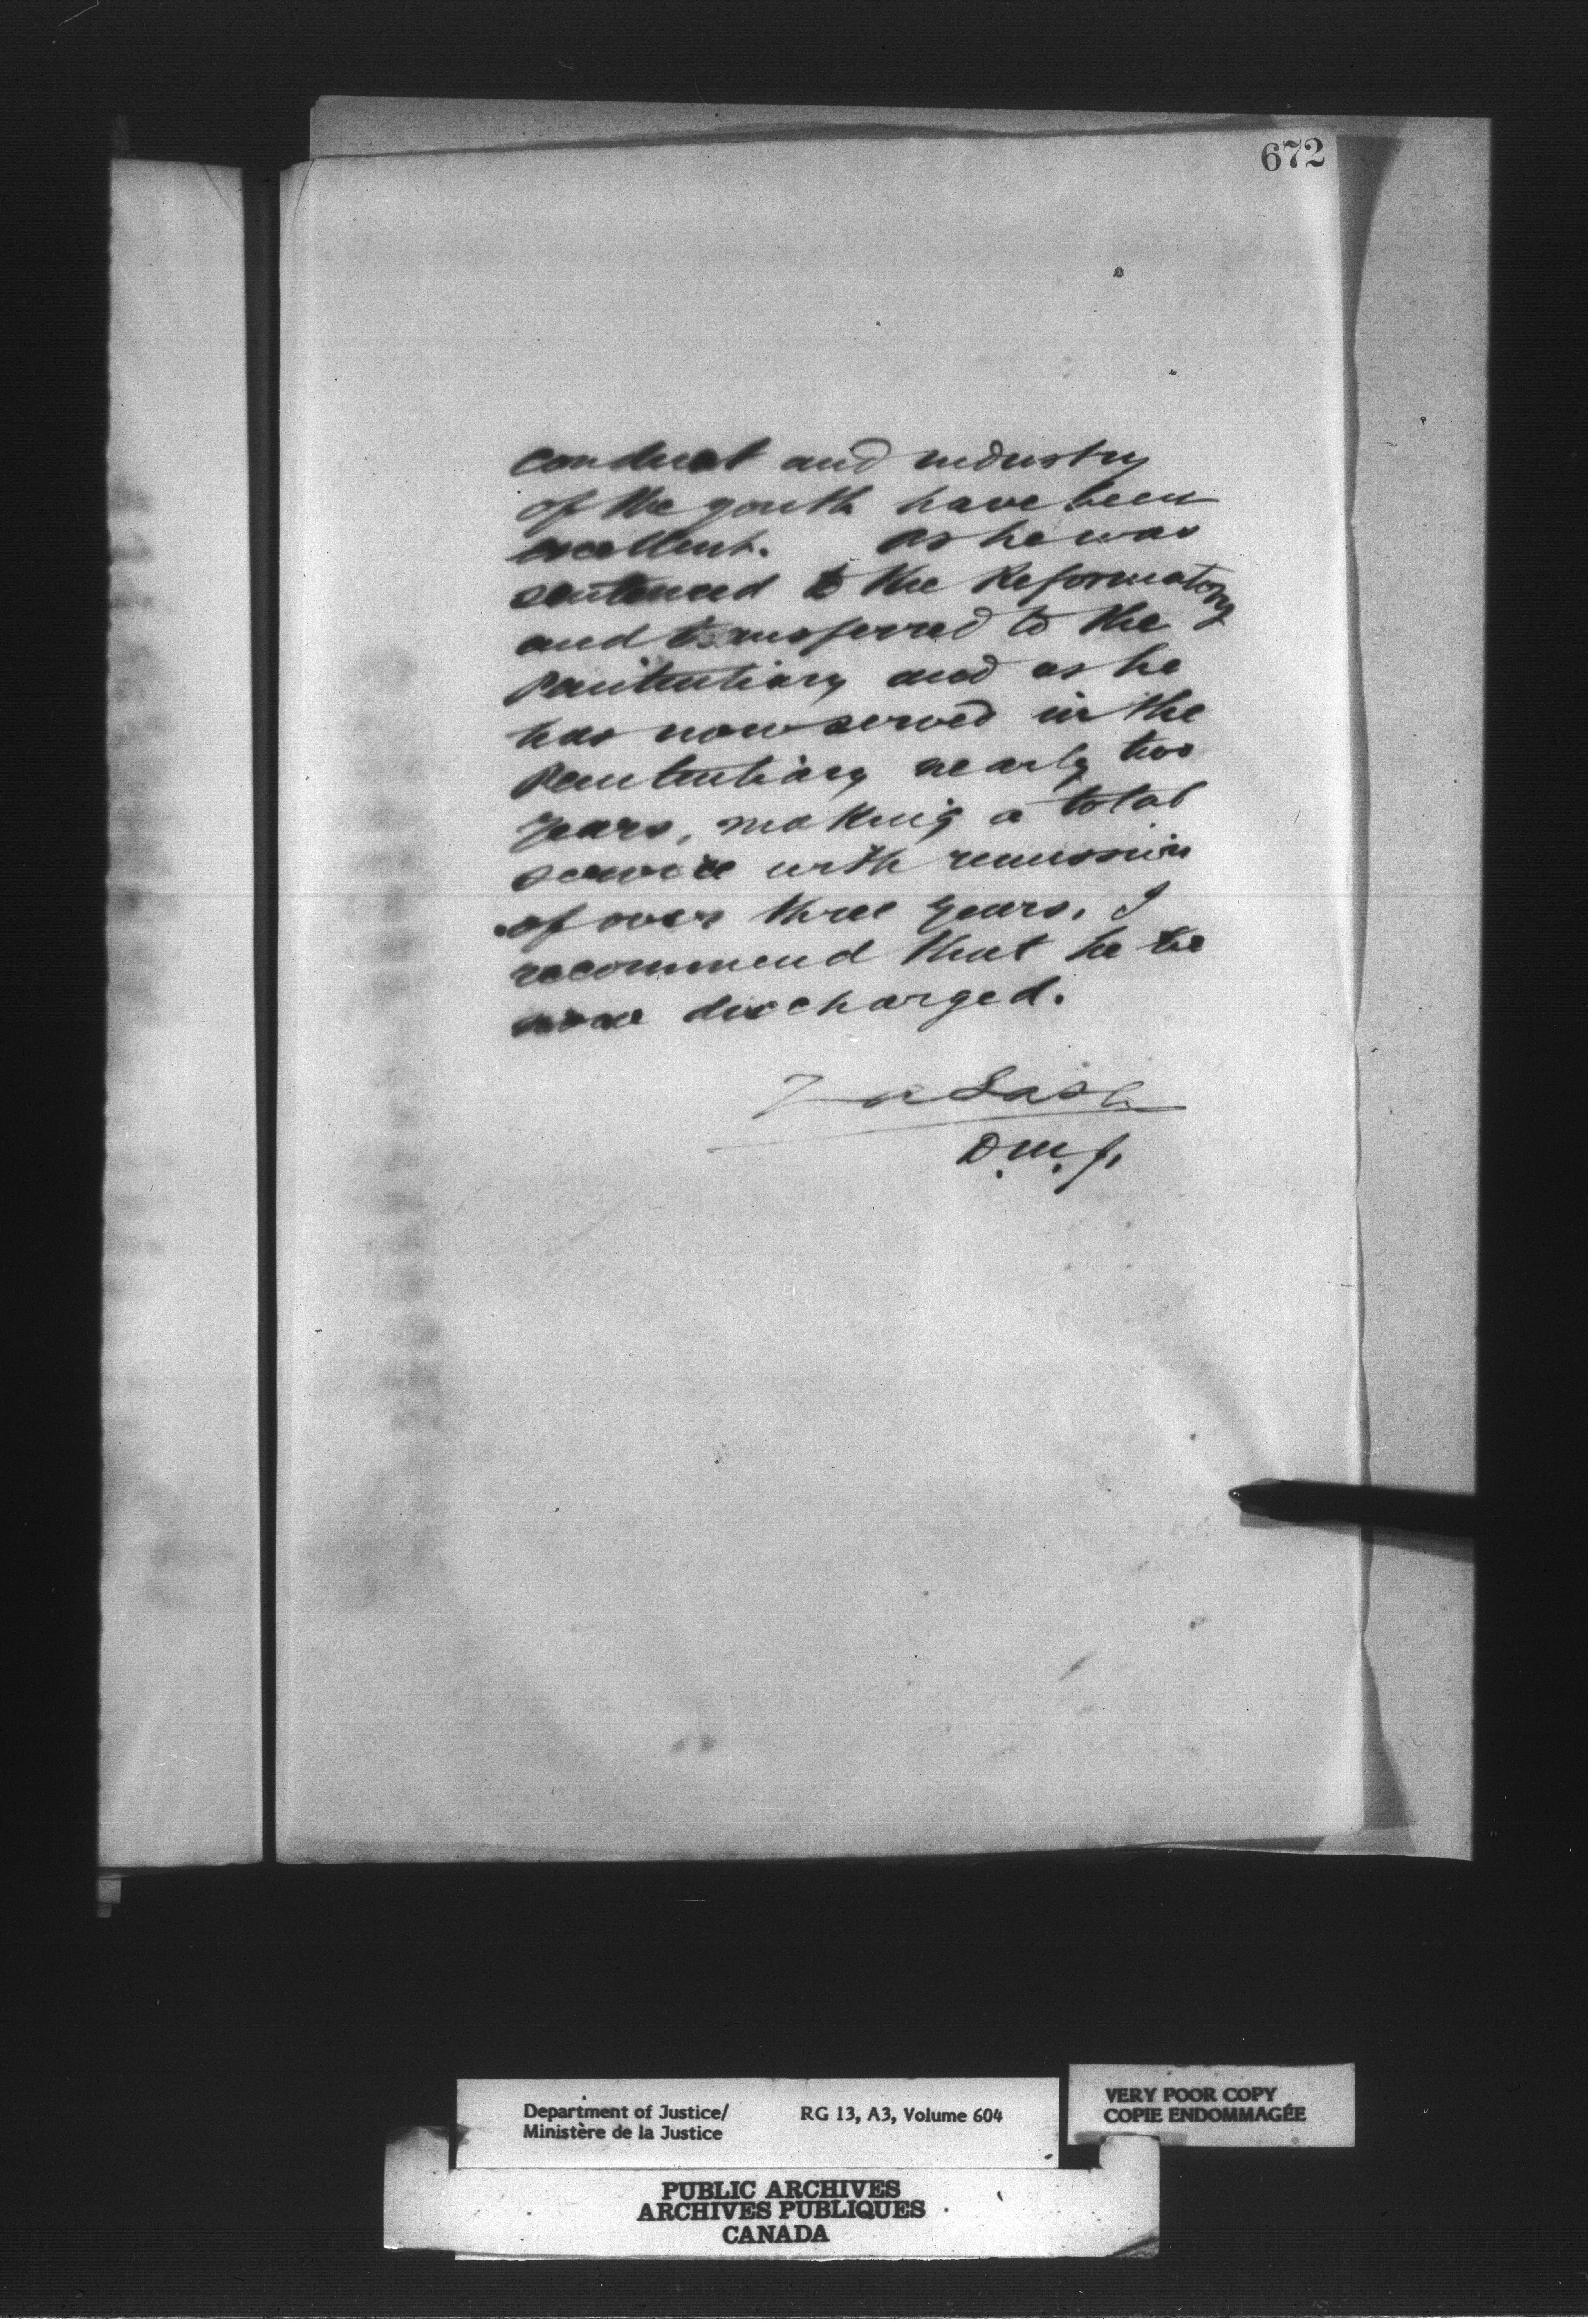 672
conduct and industry
of the youth have been
excellent. As he was
sentenced to the Reformatory
and transferred to the
Penitentiary and as he
has now served in the
Penitentiary nearly two
years, making a total
service with remission
of over three years, I
recommend that he be
now discharged.
Z A Lash
D.M.J.
Department of Justice/
Ministère de la Justice
RG 13, A3, Volume 604
VERY POOR COPY
COPIE ENDOMMAGÉE
PUBLIC ARCHIVES
ARCHIVES PUBLIQUES
CANADA